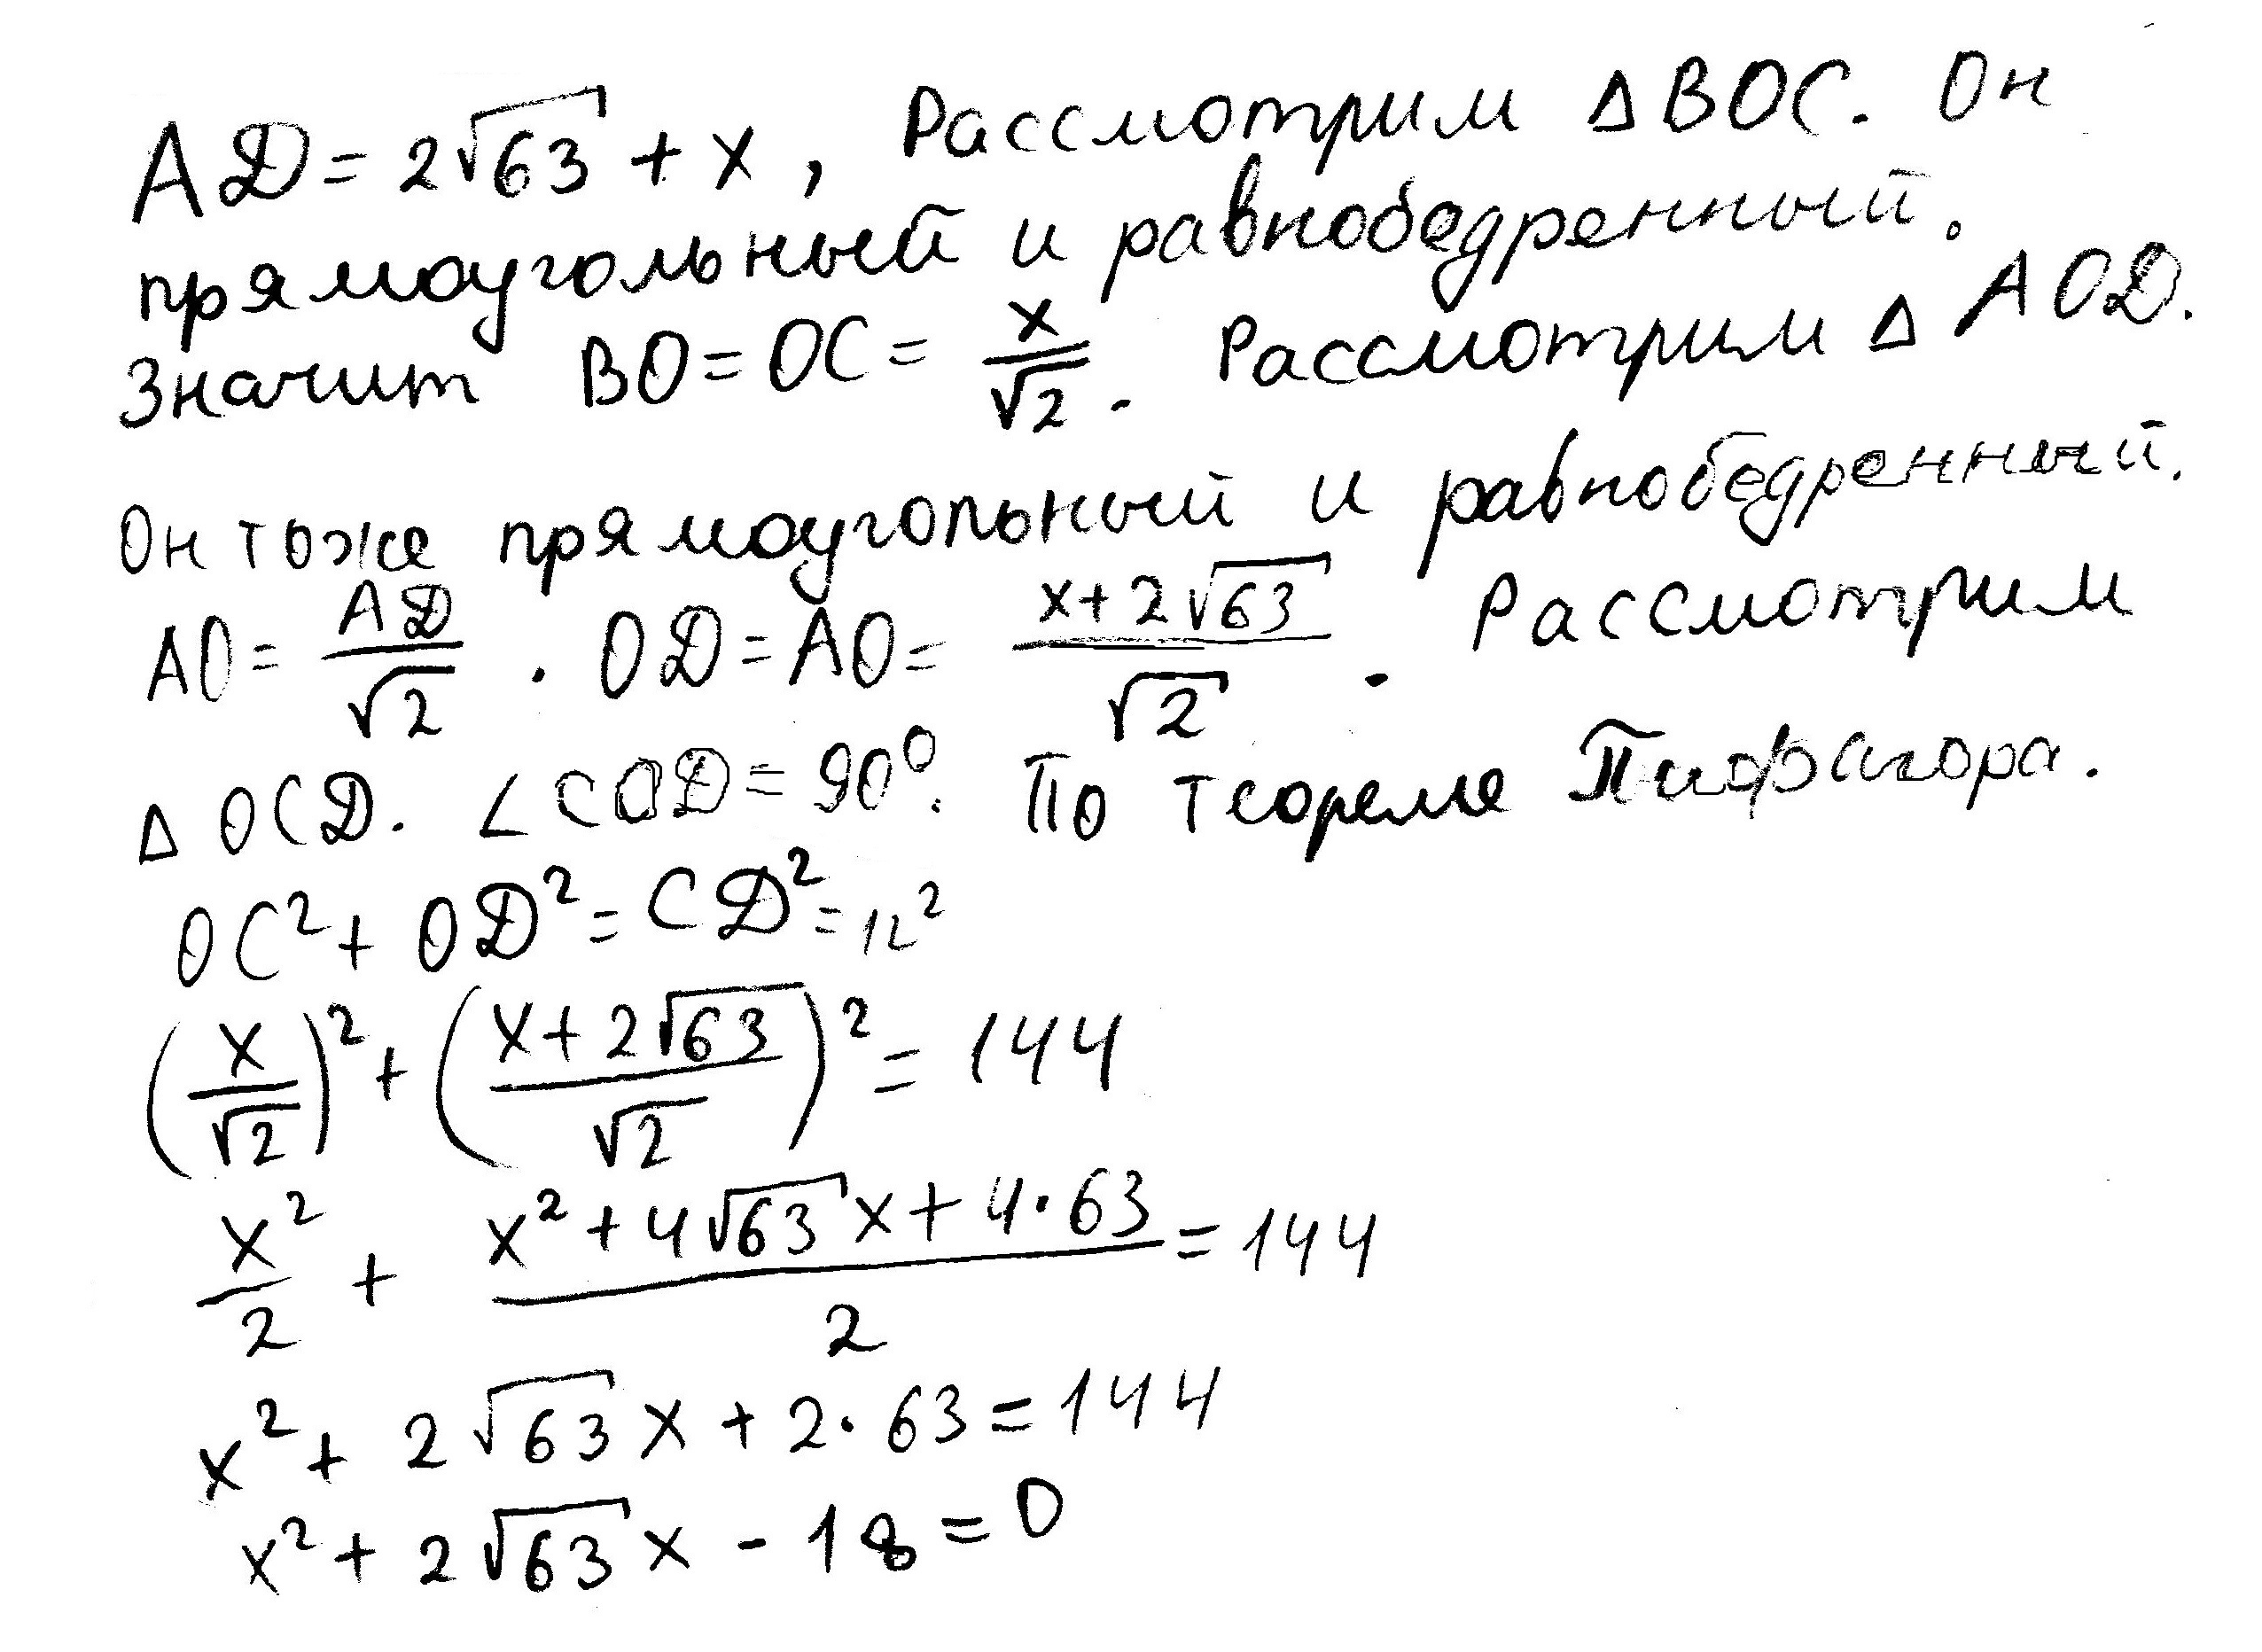 AD = 2√63 + x, Рассмотрим Δ BOC. Он
прямоугольный и равнобедренный.
Значит BO = OC = x/√2. Рассмотрим Δ AOD.
Он тоже прямоугольный и равнобедренный.
AO = AD/√2. OD = AO = (x + 2√63)/√2. Рассмотрим
Δ OCD. ∠COD = 90°. По теореме Пифагора.
OC² + OD² = CD² = 12²
(x/√2)² + ((x + 2√63)/√2)² = 144
x²/2 + (x² + 4√63x + 4·63)/2 = 144
x² + 2√63x + 2·63 = 144
x² + 2√63x - 18 = 0